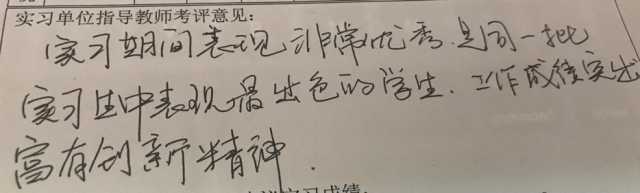 实习单位指导教师考评意见：
实习期间表现非常优秀.是同一批
实习生中表现最出色的学生.工作成绩突出
富有创新精神.
实习成绩：